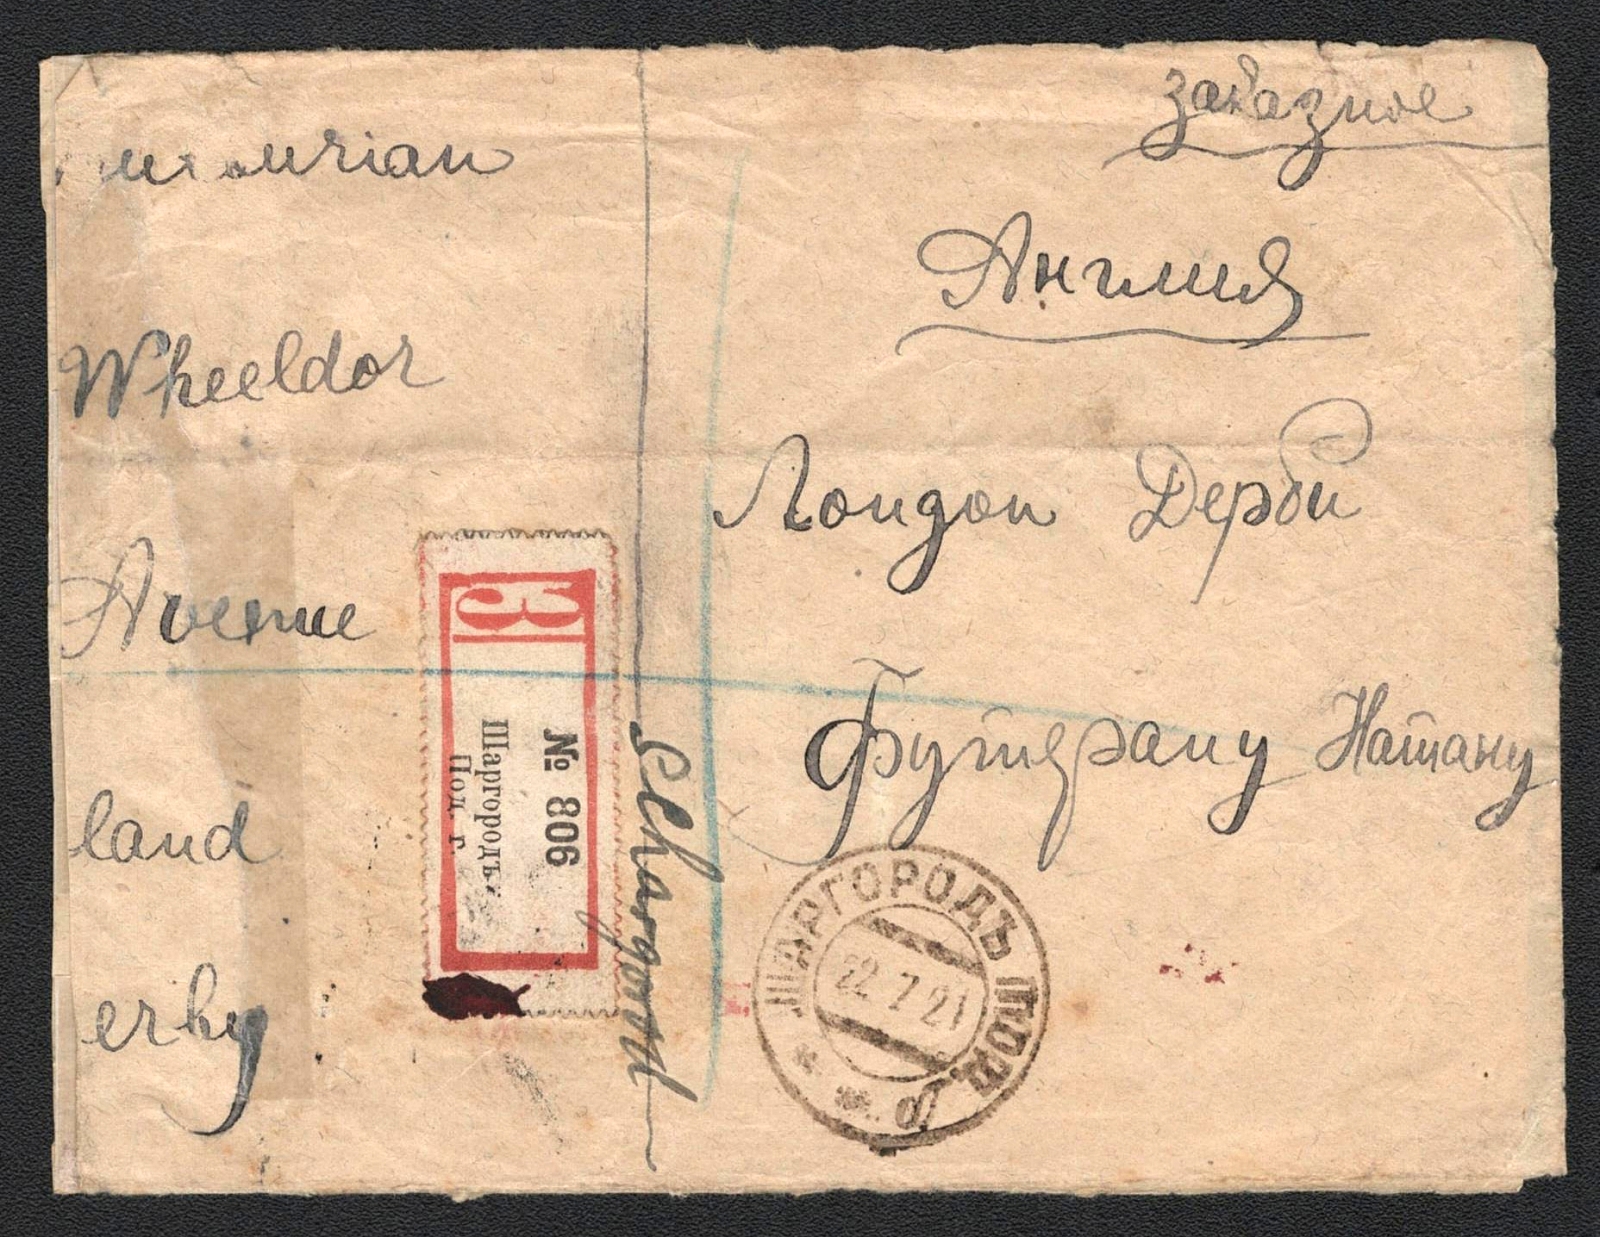 заказное
Англия
Лондон Дерби
Футерану Натану
Wheeldor
Avenue
land
erby
З
№ 806
Шаргородъ,
Под. г.
Schargorod
ШАРГОРОДЪ ПОД. Г.
22 7 21